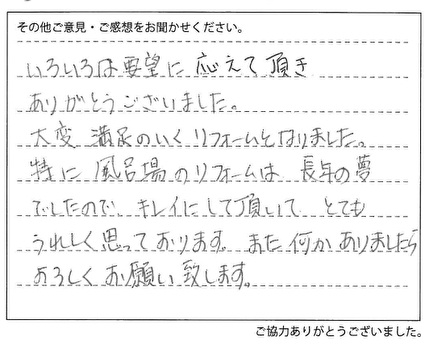 その他ご意見・ご感想をお聞かせください。
いろいろな要望に 応えて 頂き
ありがとうございました。
大変 満足のいく リフォームとなりました。
特に 風呂場のリフォームは 長年の夢
でしたので キレイにして頂いて とても
うれしく思っております。また何かありましたら
よろしくお願い致します。
ご協力ありがとうございました。